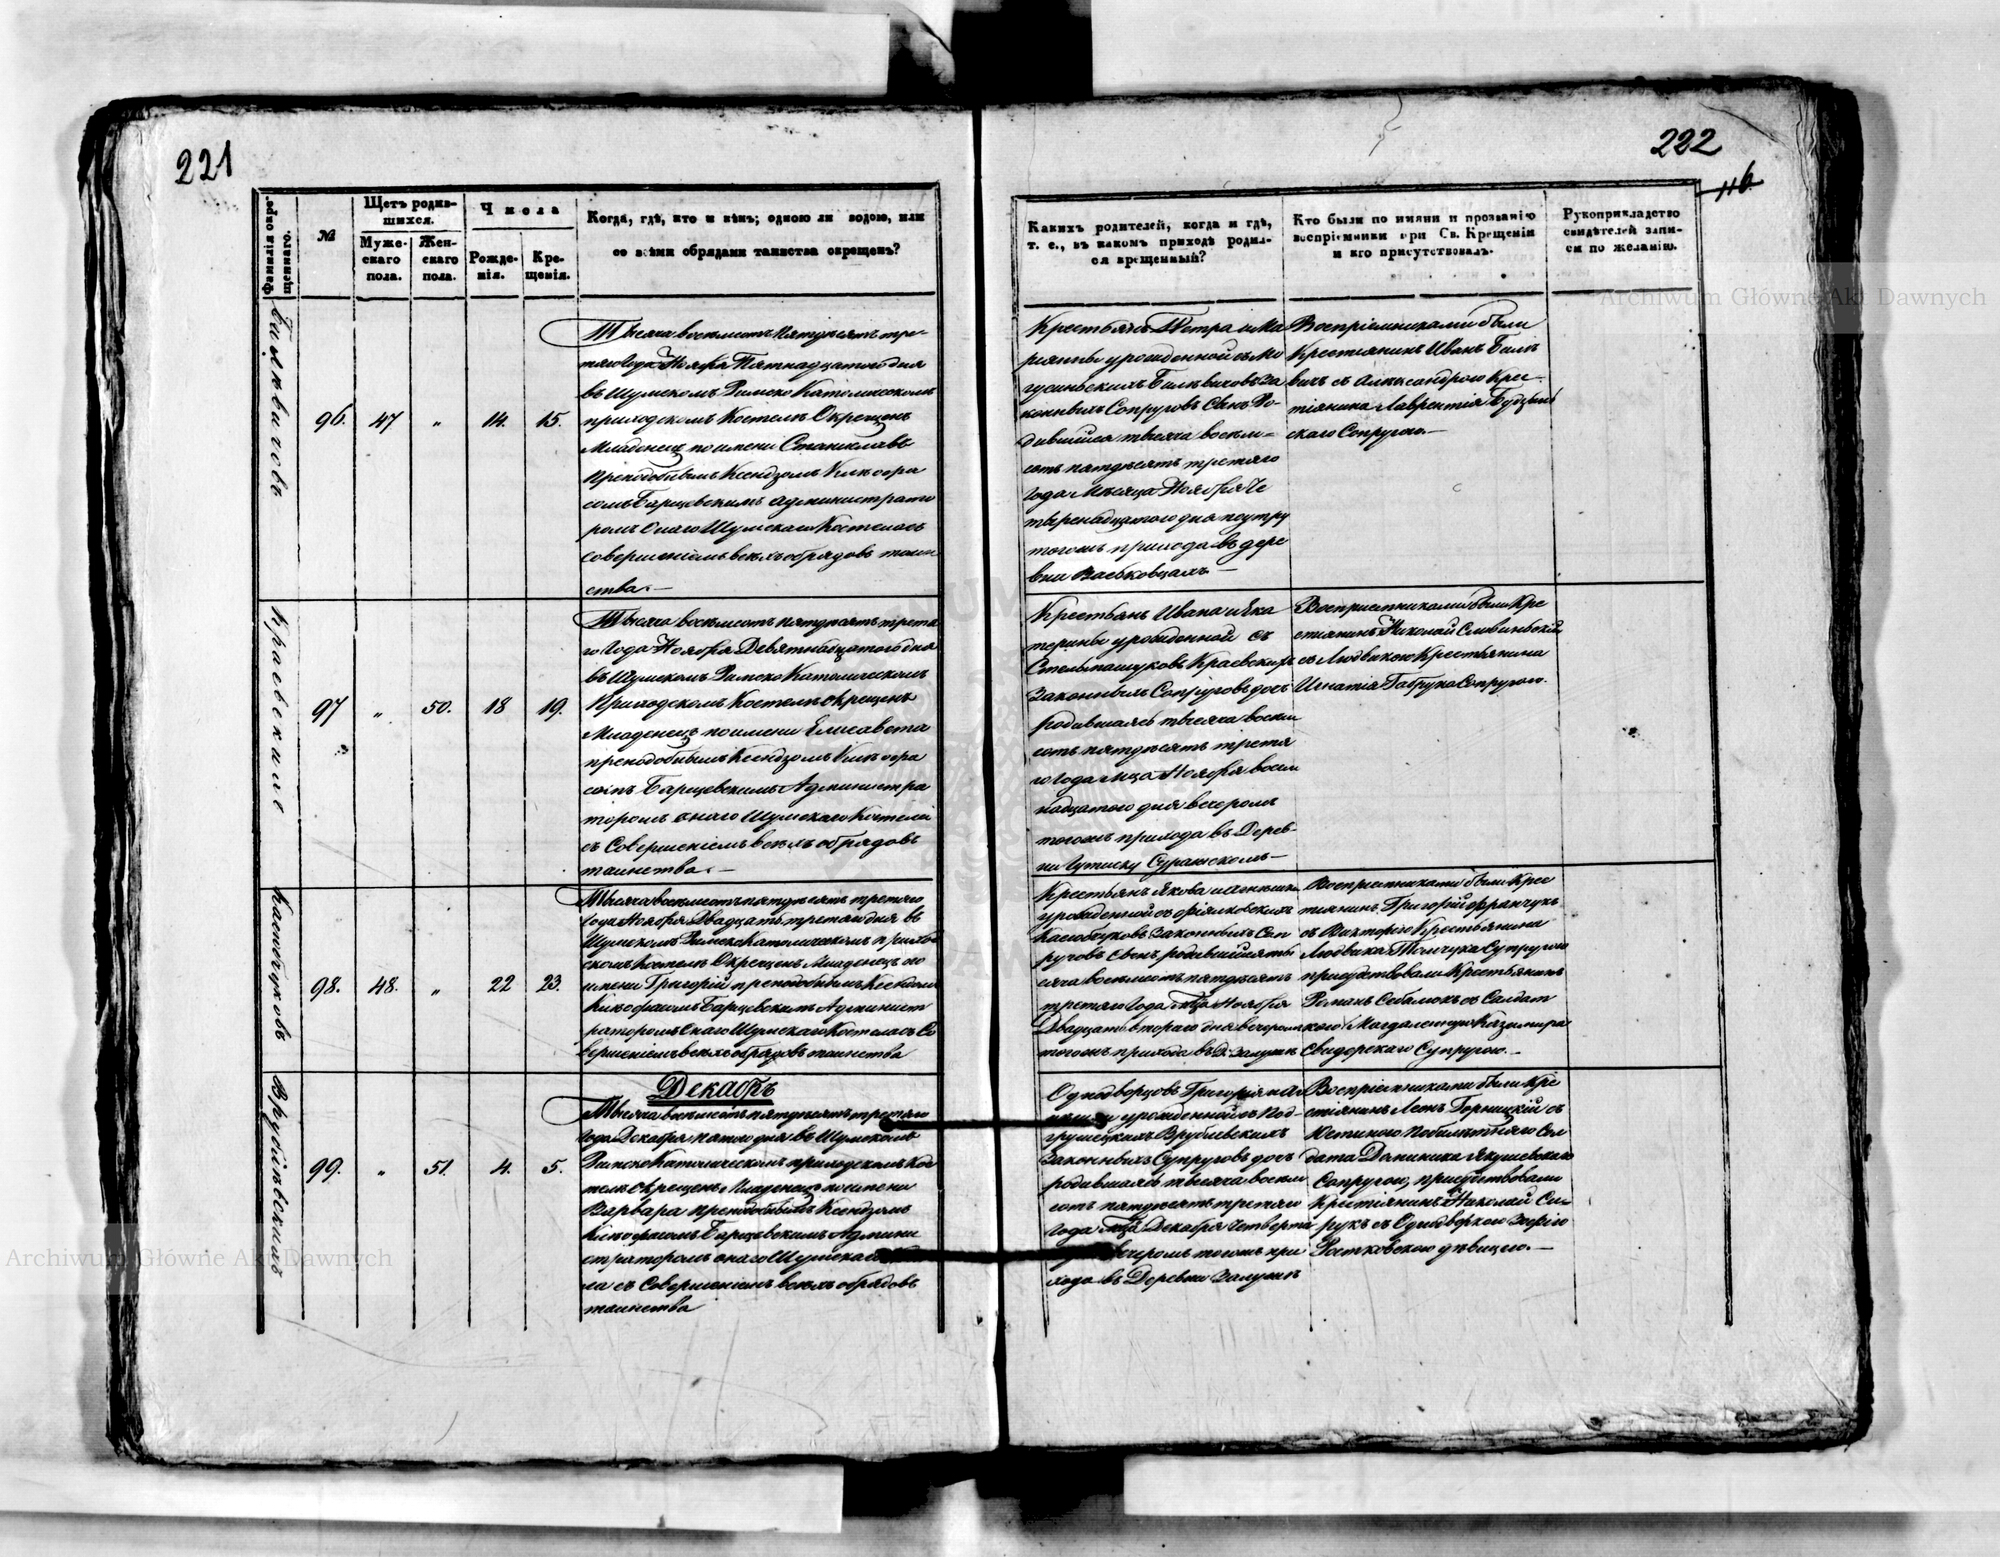 221
Фамилія окре-
щеннаго.
№
Щетъ родив-
шихся.
Муже-
скаго
пола.
Жен-
скаго
пола.
Числа
Рожде-
нія.
Кре-
щенія.
Когда, гдѣ, кто и кѣмъ; одною ли водою, или
со всѣми обрядами таинства окрещенъ?
96.
47
"
14.
15.
Тысяча восемсотъ пятдесятъ тре-
тяго Года Ноября Пятнадцатого дня
въ Шумскомъ Римско Католическомъ
приходскомъ Костелѣ Окрещенъ
Младенецъ по имени Станиславъ
Преподобнымъ Ксендзомъ
Барщевскимъ Администрато
ромъ Онаго Шумскаго Костела съ
совершеніемъ всѣхъ обрядовъ таин
ства.—
Краевскихъ
97
"
50.
18
19.
Тысяча восемсотъ пятдесятъ третя
го Года Ноября Девятнадцатого дня
въ Шумскомъ Римско Католическомъ
Приходскомъ Костелѣ окрещенъ
Младенецъ по имени Елисавета
преподобнымъ Ксендзомъ
Барщевскимъ Администра
торомъ онаго Шумскаго Костела
съ Совершеніемъ всѣхъ обрядовъ
таинства.—
98.
48.
"
22
23.
Тысяча восемсотъ пятдесятъ третяго
Года Ноября Двадцать третаго дня въ
Шумскомъ Римско Католическомъ прихо
скомъ Костелѣ Окрещенъ Младенецъ по
имени Григорій преподобнымъ Ксендзомъ
Барщевскимъ Админист
раторомъ Онаго Шумскаго Костела съ Со
вершеніемъ всѣхъ обрядовъ таинства
Врублевскихъ
99.
"
51.
4.
5.
Декабрь
Тысяча восемсотъ пятдесятъ третяго
Года Декабря пятого дня въ Шумскомъ
Римско Католическомъ приходскомъ Кос
телѣ окрещенъ Младенецъ по имени
Варвара преподобнымъ Ксендзомъ
Барщевскимъ Админи
страторомъ онаго Шумскаго
ла съ Совершеніемъ всѣхъ обрядовъ
таинства
222
116
Какихъ родителей, когда и гдѣ,
т. е., въ какомъ приходѣ родил-
ся крещенный?
Кто были по имяни и прозванію
воспріемники при Св. Крещеніи
и кто присутствовалъ.
Рукоприкладство
свидѣтелей запи-
си по желанію.
Крестьянъ Петра и Ма
ріянны урожденной съ Мо
гусинскихъ Бильвичовъ за
конныхъ Супруговъ Сынъ Ро-
дившійся тысяча восем=
сотъ пятдесятъ третяго
Года Мѣсяца Ноября Че
тыренадцатого дня поутру
тогожъ прихода въ дере
вни Васьковцахъ —
Воспріемниками были
Крестіянинъ Иванъ Биль
вичъ съ Александрою Крес-
тіянина Лаврентія
скаго Супругою.—
Крестьянъ Ивана и Ека
терины урожденной съ
Стельмащуковъ Краевскихъ
Законныхъ Супруговъ дочь
родившаясь тысяча восем
сотъ пятдесятъ третя
го Года мца Ноября восем
надцатого дня вечеромъ
тогожъ прихода въ Дерев-
ни Гутиску Суражскомъ —
Воспріемниками были Кре
стіянинъ Николай Сливинскій
съ Людвикою Крестьянина
Игнатія Габрука Супругою.
Крестьянъ Якова и Агнешки
урожденной съ Фіялковскихъ
Законныхъ Суп
руговъ сынъ, родившійся ты
сяча восемсотъ пятдесятъ
третяго Года мца Ноября
Двадцать втораго дня вечеромъ
тогожъ прихода въ Д. Залужи
Воспріемниками были Крес
тіянинъ Григорій Франчукъ
съ Викторіею Крестьянина
Людвика Супругою
присутствовали Крестьянинъ
Романъ съ Солдат
кою Магдаленою Казимира
Свидерскаго Супругою.—
Однодворцовъ Григорія и
урожденной съ Под-
грушецкихъ Врублевскихъ
Законныхъ Супруговъ дочь
родившаясь тысяча восем
сотъ пятдесятъ третяго
Года мца Декабря Четвертого
вечеромъ тогожъ при
хода въ Деревни Залужи
Воспріемниками были Кре
стіянинъ Леонъ Горницкій съ
Юстиною Сол
дата Доминика Якушевскаго
Супругою, присутствовали
Крестіянинъ Николай
съ Однодворкою Зофіею
Ростковскою дѣвицею.—
Archiwum Główne Akt Dawnych
Archiwum Główne Akt Dawnych